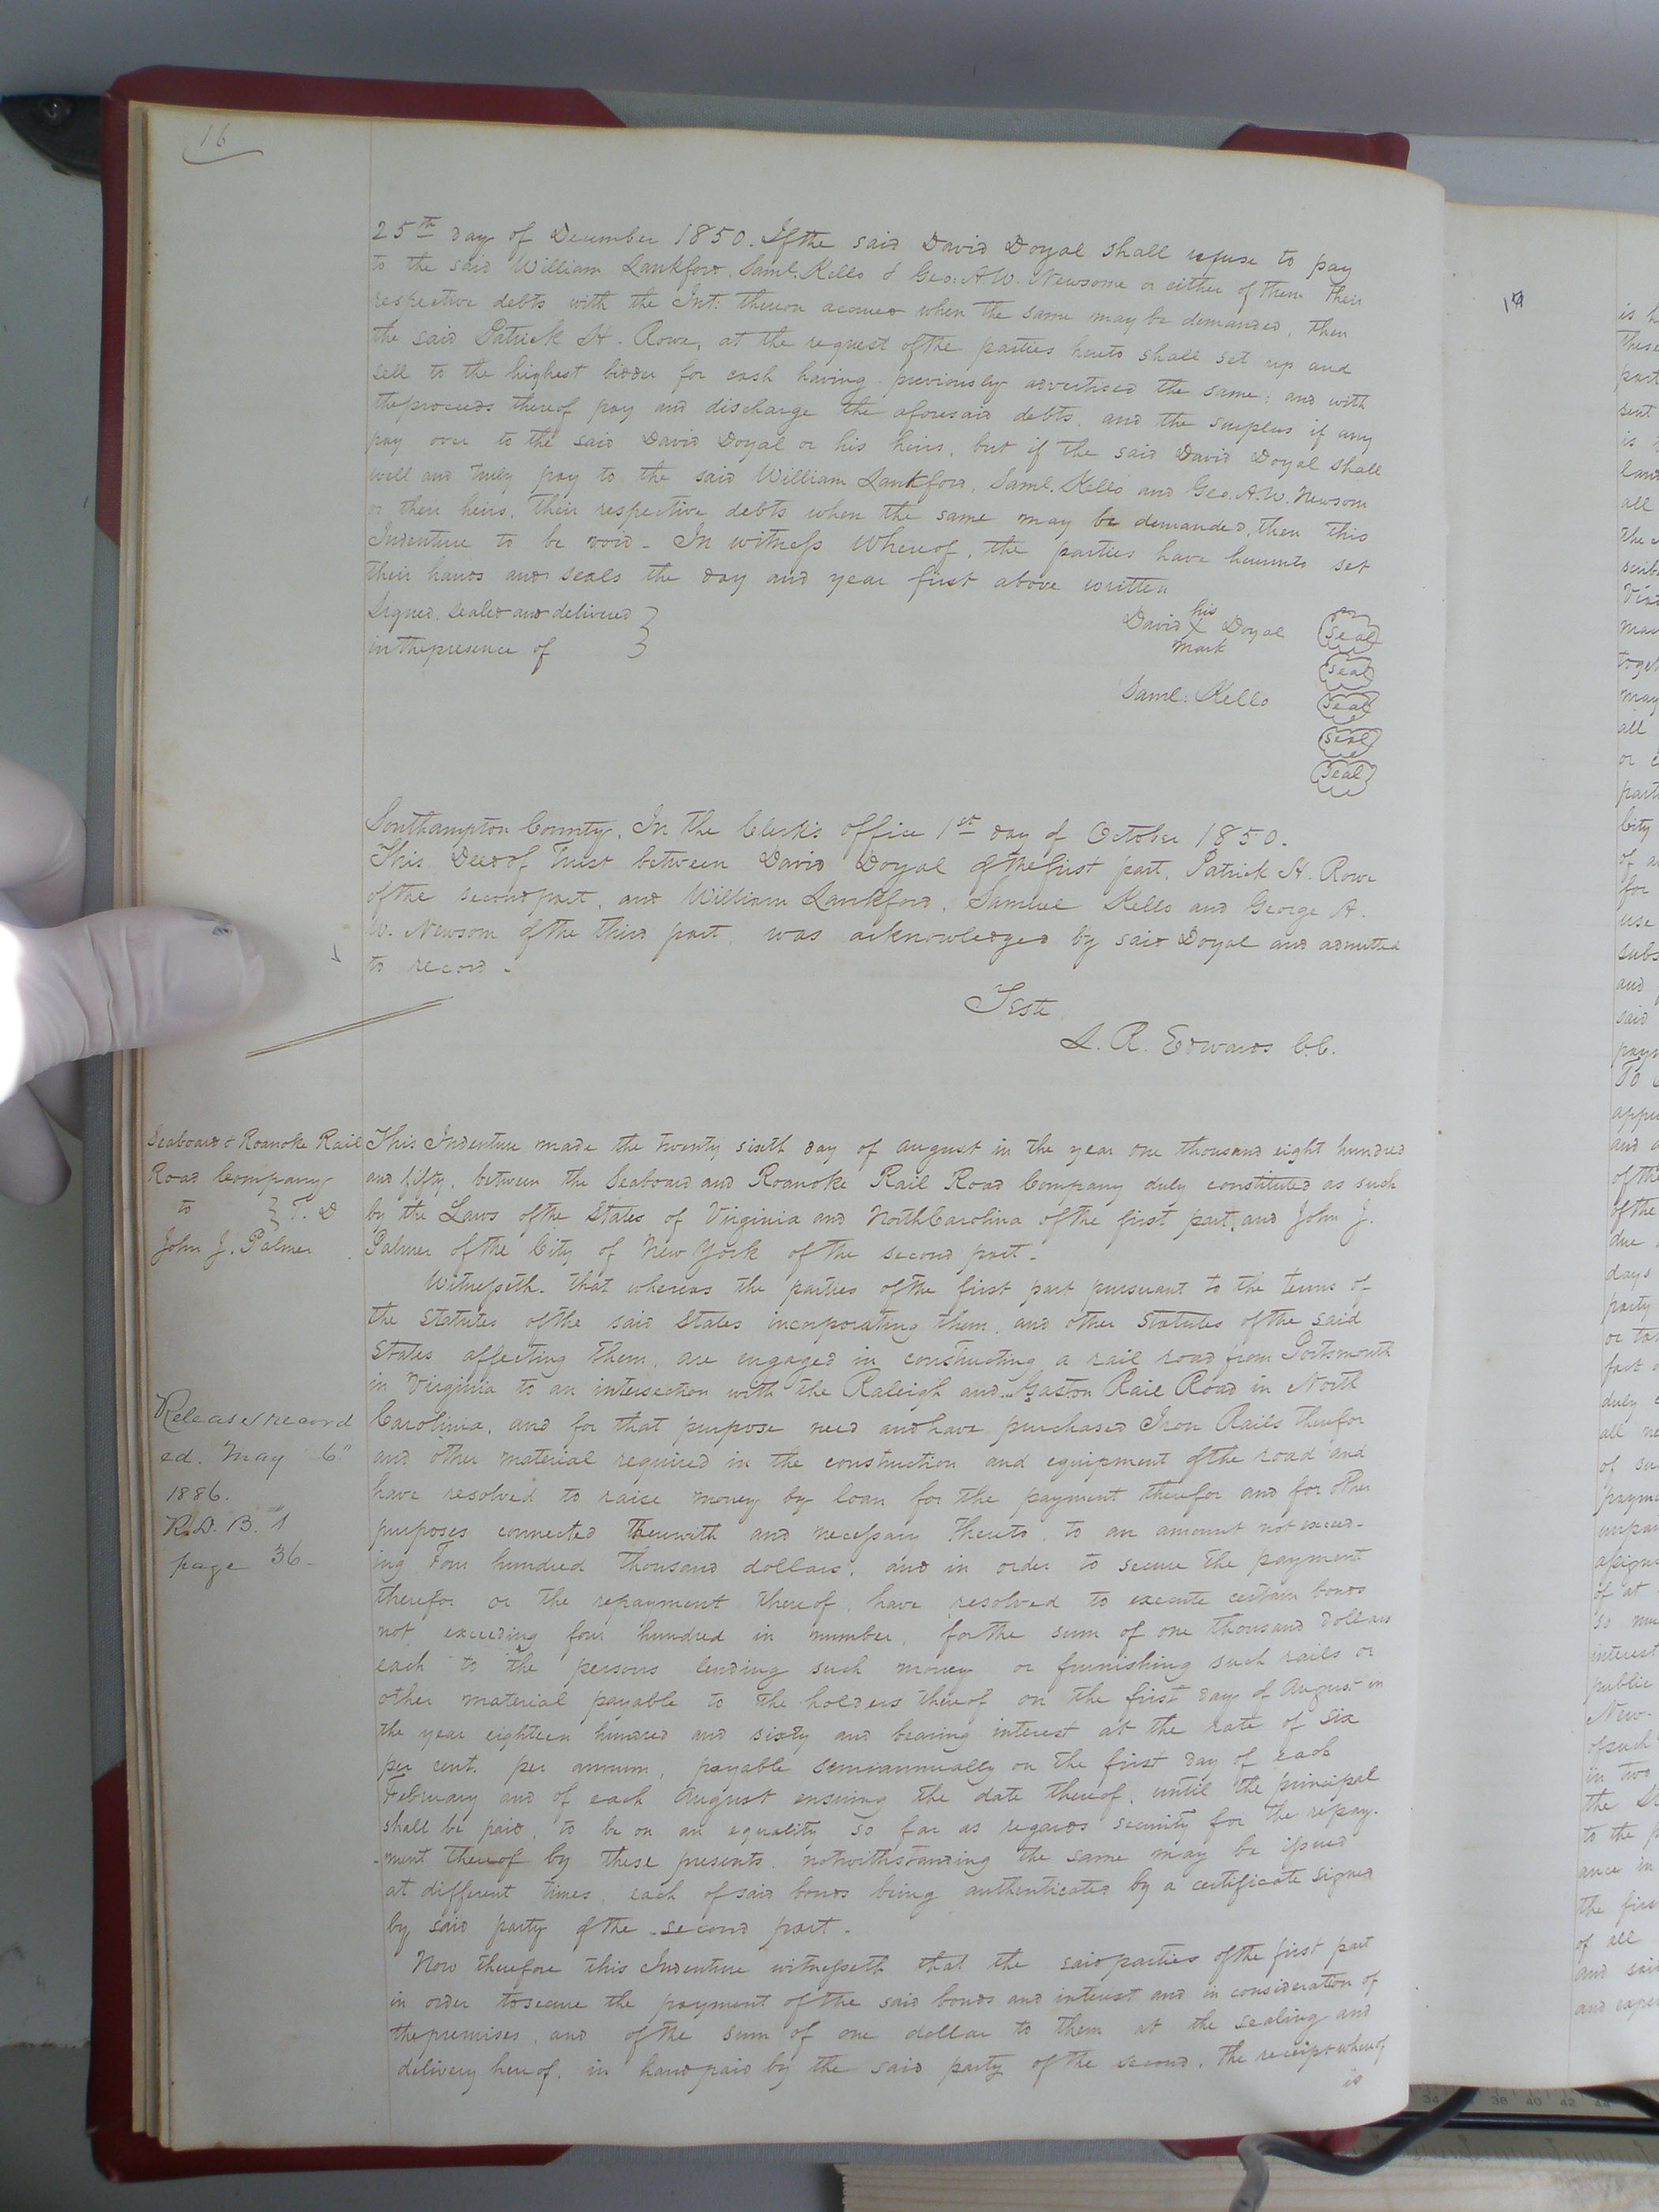 16
25th day of December 1850. If the said David Doyal shall refuse to pay
to the said William Lankford, Saml. Kello & Geo: A W. Newsome or either of them their
respective debts with the Int: thereon accrued when the same may be demanded, then
the said Patrick H. Rowe, at the request of the parties hereto shall set up and
sell to the highest bidder for cash having previously advertised the same; and with
the proceeds thereof pay and discharge the aforesaid debts, and the surplus if any
pay over to the said David Doyal or his heirs, but if the said David Doyal shall
well and truly pay to the said William Lankford, Saml. Kello and Geo. A. W. Newsom
or their heirs, their respective debts when the same may be demanded, then this
Indenture to be void - In witness Whereof, the parties have hereunto set
their hands and seals the day and year first above written
Signed, sealed and delivered
in the presence of
his
David X Doyal
mark
Seal
Seal
Saml: Kello
Seal
Seal
Seal
Southampton County, In the Clerk's office 1st day of October 1850.
This Deed of Trust between David Doyal of the first part, Patrick H. Rowe
of the second part, and William Lankford, Samuel Kello and George A.
W. Newsom of the third part, was acknowledged by said Doyal and admitted
to record -
Teste
L. R. Edwards C.C.
Seaboard & Roanoke Rail
Road Company
to } T. D
John J. Palmer
This Indenture made the twenty sixth day of August in the year one thousand eight hundred
and fifty, between the Seaboard and Roanoke Rail Road Company duly constituted as such
by the Laws of the States of Virginia and North Carolina of the first part, and John J.
Palmer of the City of New York of the second part -
Witnesseth, that whereas the parties of the first part pursuant to the terms of
the Statutes of the said States incorporating them, and other Statutes of the said
States affecting them, are engaged in constructing a rail road from Portsmouth
in Virginia to an intersection with the Raleigh and Gaston Rail Road in North
Carolina, and for that purpose need and have purchased Iron Rails therefor
and other material required in the construction and equipment of the road and
have resolved to raise money by loan for the payment therefor and for other
purposes connected therewith and necessary thereto, to an amount not exceed-
ing Four hundred thousand dollars, and in order to secure the payment
therefor or the repayment thereof, have resolved to execute certain bonds
not exceeding four hundred in number, for the sum of one thousand dollars
each to the persons lending such money or furnishing such rails or
other material payable to the holders thereof on the first day of August in
the year eighteen hundred and sixty and bearing interest at the rate of six
per cent. per annum, payable semiannually on the first day of each
February and of each August ensuing the date thereof, until the principal
shall be paid, to be on an equality so far as regards security for the repay-
-ment thereof by these presents, notwithstanding the same may be issued
at different times, each of said bonds being authenticated by a certificate signed
by said party of the second part -
Now therefore this Indenture witnesseth that the said parties of the first part
in order to secure the payment of the said bonds and interest and in consideration of
the premises, and of the sum of one dollar to them at the sealing and
delivery hereof, in hand paid by the said party of the second, the receipt whereof
is
Release record
ed. May 6"
1886.
R.D. B. 1
page 36-